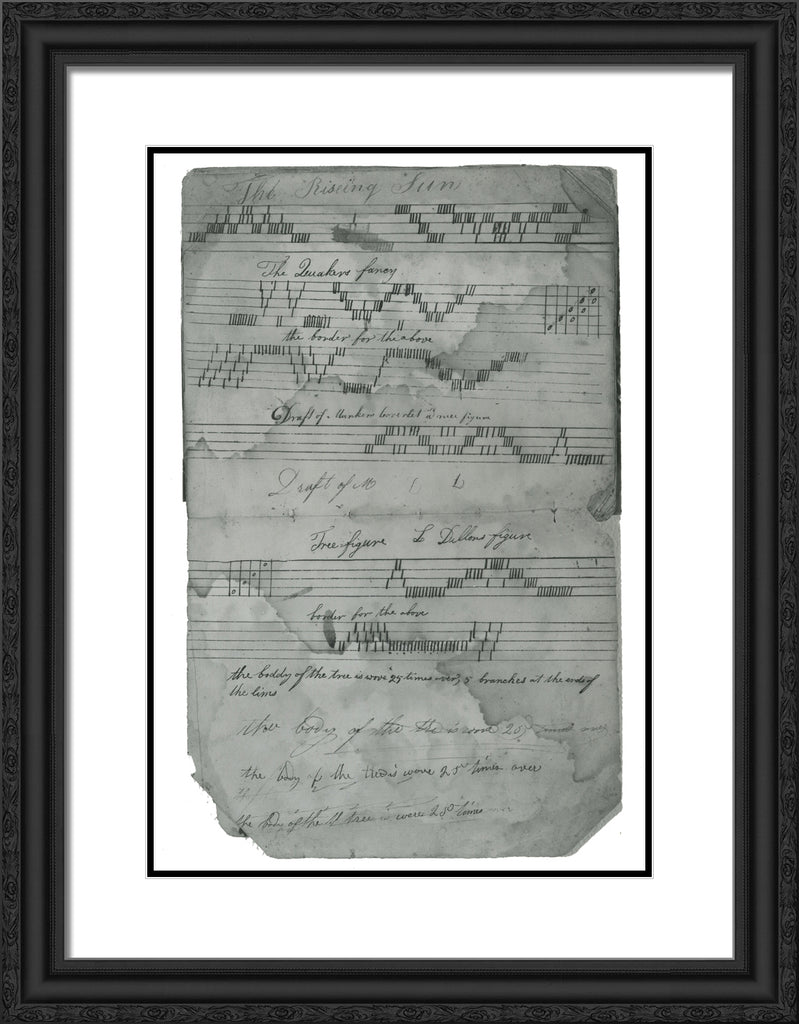 The Riseing Sun
The Quakers fancy
the border for the above
Draft of a nee figure
Draft of M L L
Tree figure L Dullons figure
border for the above
the boddy of the tree is wove 25 times over, 5 branches at the ends of
the lims
the body of the the is wove 25
the body of the tree is wove 25 times over
the body of the tree is wove 25 times over